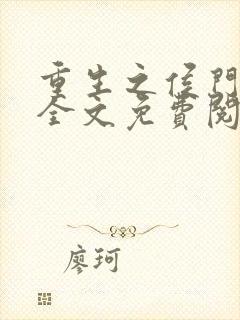 重生之侯門
全文免費閱
廖珂